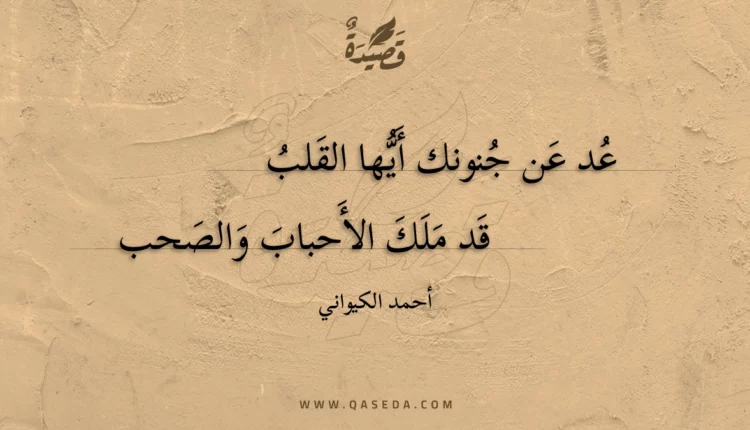 قَصيْدَةٌ
عُد عَن جُنونك أَيُّها القَلبُ
قَد مَلَكَ الأَحبابَ وَالصَحب
أحمد الكيواني
WWW.QASEDA.COM